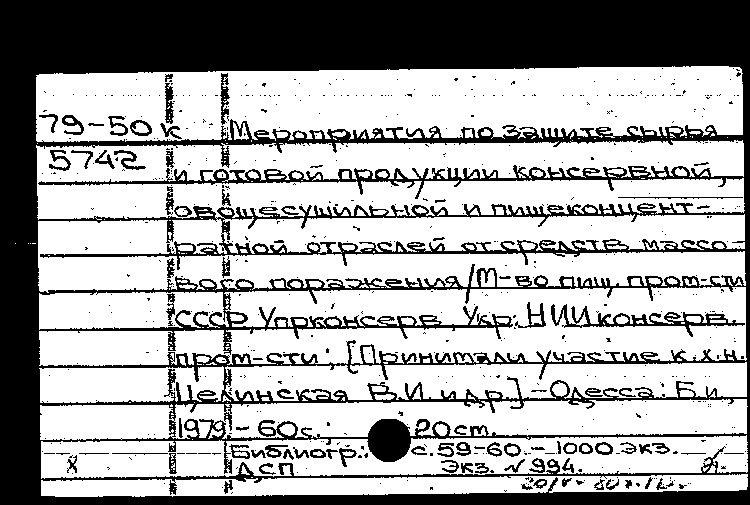 79-50 к Мероприятия по защите сырья
5742
и готовой продукции консервной,
овощесушильной и пищеконцент-
ратной отраслей от средств массо-
вого поражения/М-во пищ. пром-сти
СССР, Упрконсерв, Укр. НИИ консерв.
пром-сти; [Принимали участие к.х.н.
Целинская В.И. и др.]-Одесса: Б.и,
1979.- 60с.; 20 ст.
Библиогр.: с. 59-60. - 1000 экз.
ДСП экз. № 994.
x